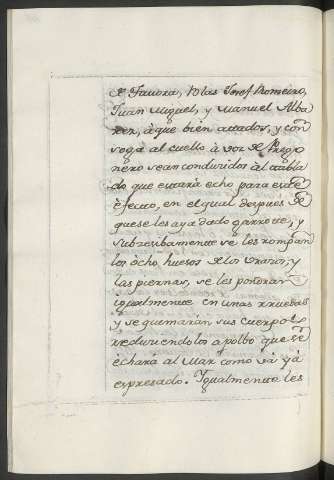 de Tavora, Blas Josef Romeiro,
Juan Miguel, y Manuel Alba
rez, à que bien atados, y con
soga al cuello à voz de Prego
nero sean conduzidos àl tabla
do que estarà echo para este
èfecto, en el qual despues de
que se les aya dado garrote, y
subcesibamente se les rompan
los òcho huesos de los brazos, y
las piernas, se les pondran
igualmente en unas rruedas
y se quemaràn sus cuerpos
reduciendolos a polbo que se
èchara al Mar como và yà
expresado. Igualmente les